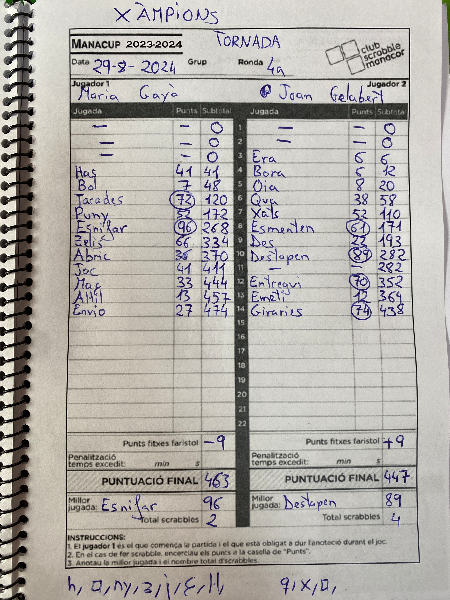 XÀMPIONS
TORNADA
MANACUP 2023-2024
club scrabble manacor
Data 29-8-2024 Grup Ronda 4a
Jugador 1 Jugador 2
Maria Gayà Joan Gelabert
Jugada Punts Subtotal Jugada Punts Subtotal
— — 0 1 — — 0
— — 0 2 — — 0
— — 0 3 Era 6 6
Has 41 41 4 Bora 6 12
Bol 7 48 5 Oia 8 20
Tacades 72 120 6 Qua 38 58
Puny 52 172 7 Xats 52 110
Esnifar 96 268 8 Esmenten 61 171
Zelis 66 334 9 Des 22 193
Abric 36 370 10 Destapen 89 282
Joc 41 411 11 — 282
Mag 33 444 12 Entregui 70 352
Atlil 13 457 13 Emetí 12 364
Envio 27 474 14 Giraries 74 438
15
16
17
18
19
20
21
22
Punts fitxes faristol -9 Punts fitxes faristol +9
Penalització temps excedit: min s Penalització temps excedit: min s
PUNTUACIÓ FINAL 463 PUNTUACIÓ FINAL 447
Millor jugada: Esnifar 96 Millor jugada: Destapen 89
Total scrabbles 2 Total scrabbles 4
INSTRUCCIONS:
1. El jugador 1 és el que comença la partida i el que està obligat a dur l'anotació durant el joc.
2. En el cas de fer scrabble, encercleu els punts a la casella de "Punts".
3. Anotau la millor jugada i el nombre total d'scrabbles.